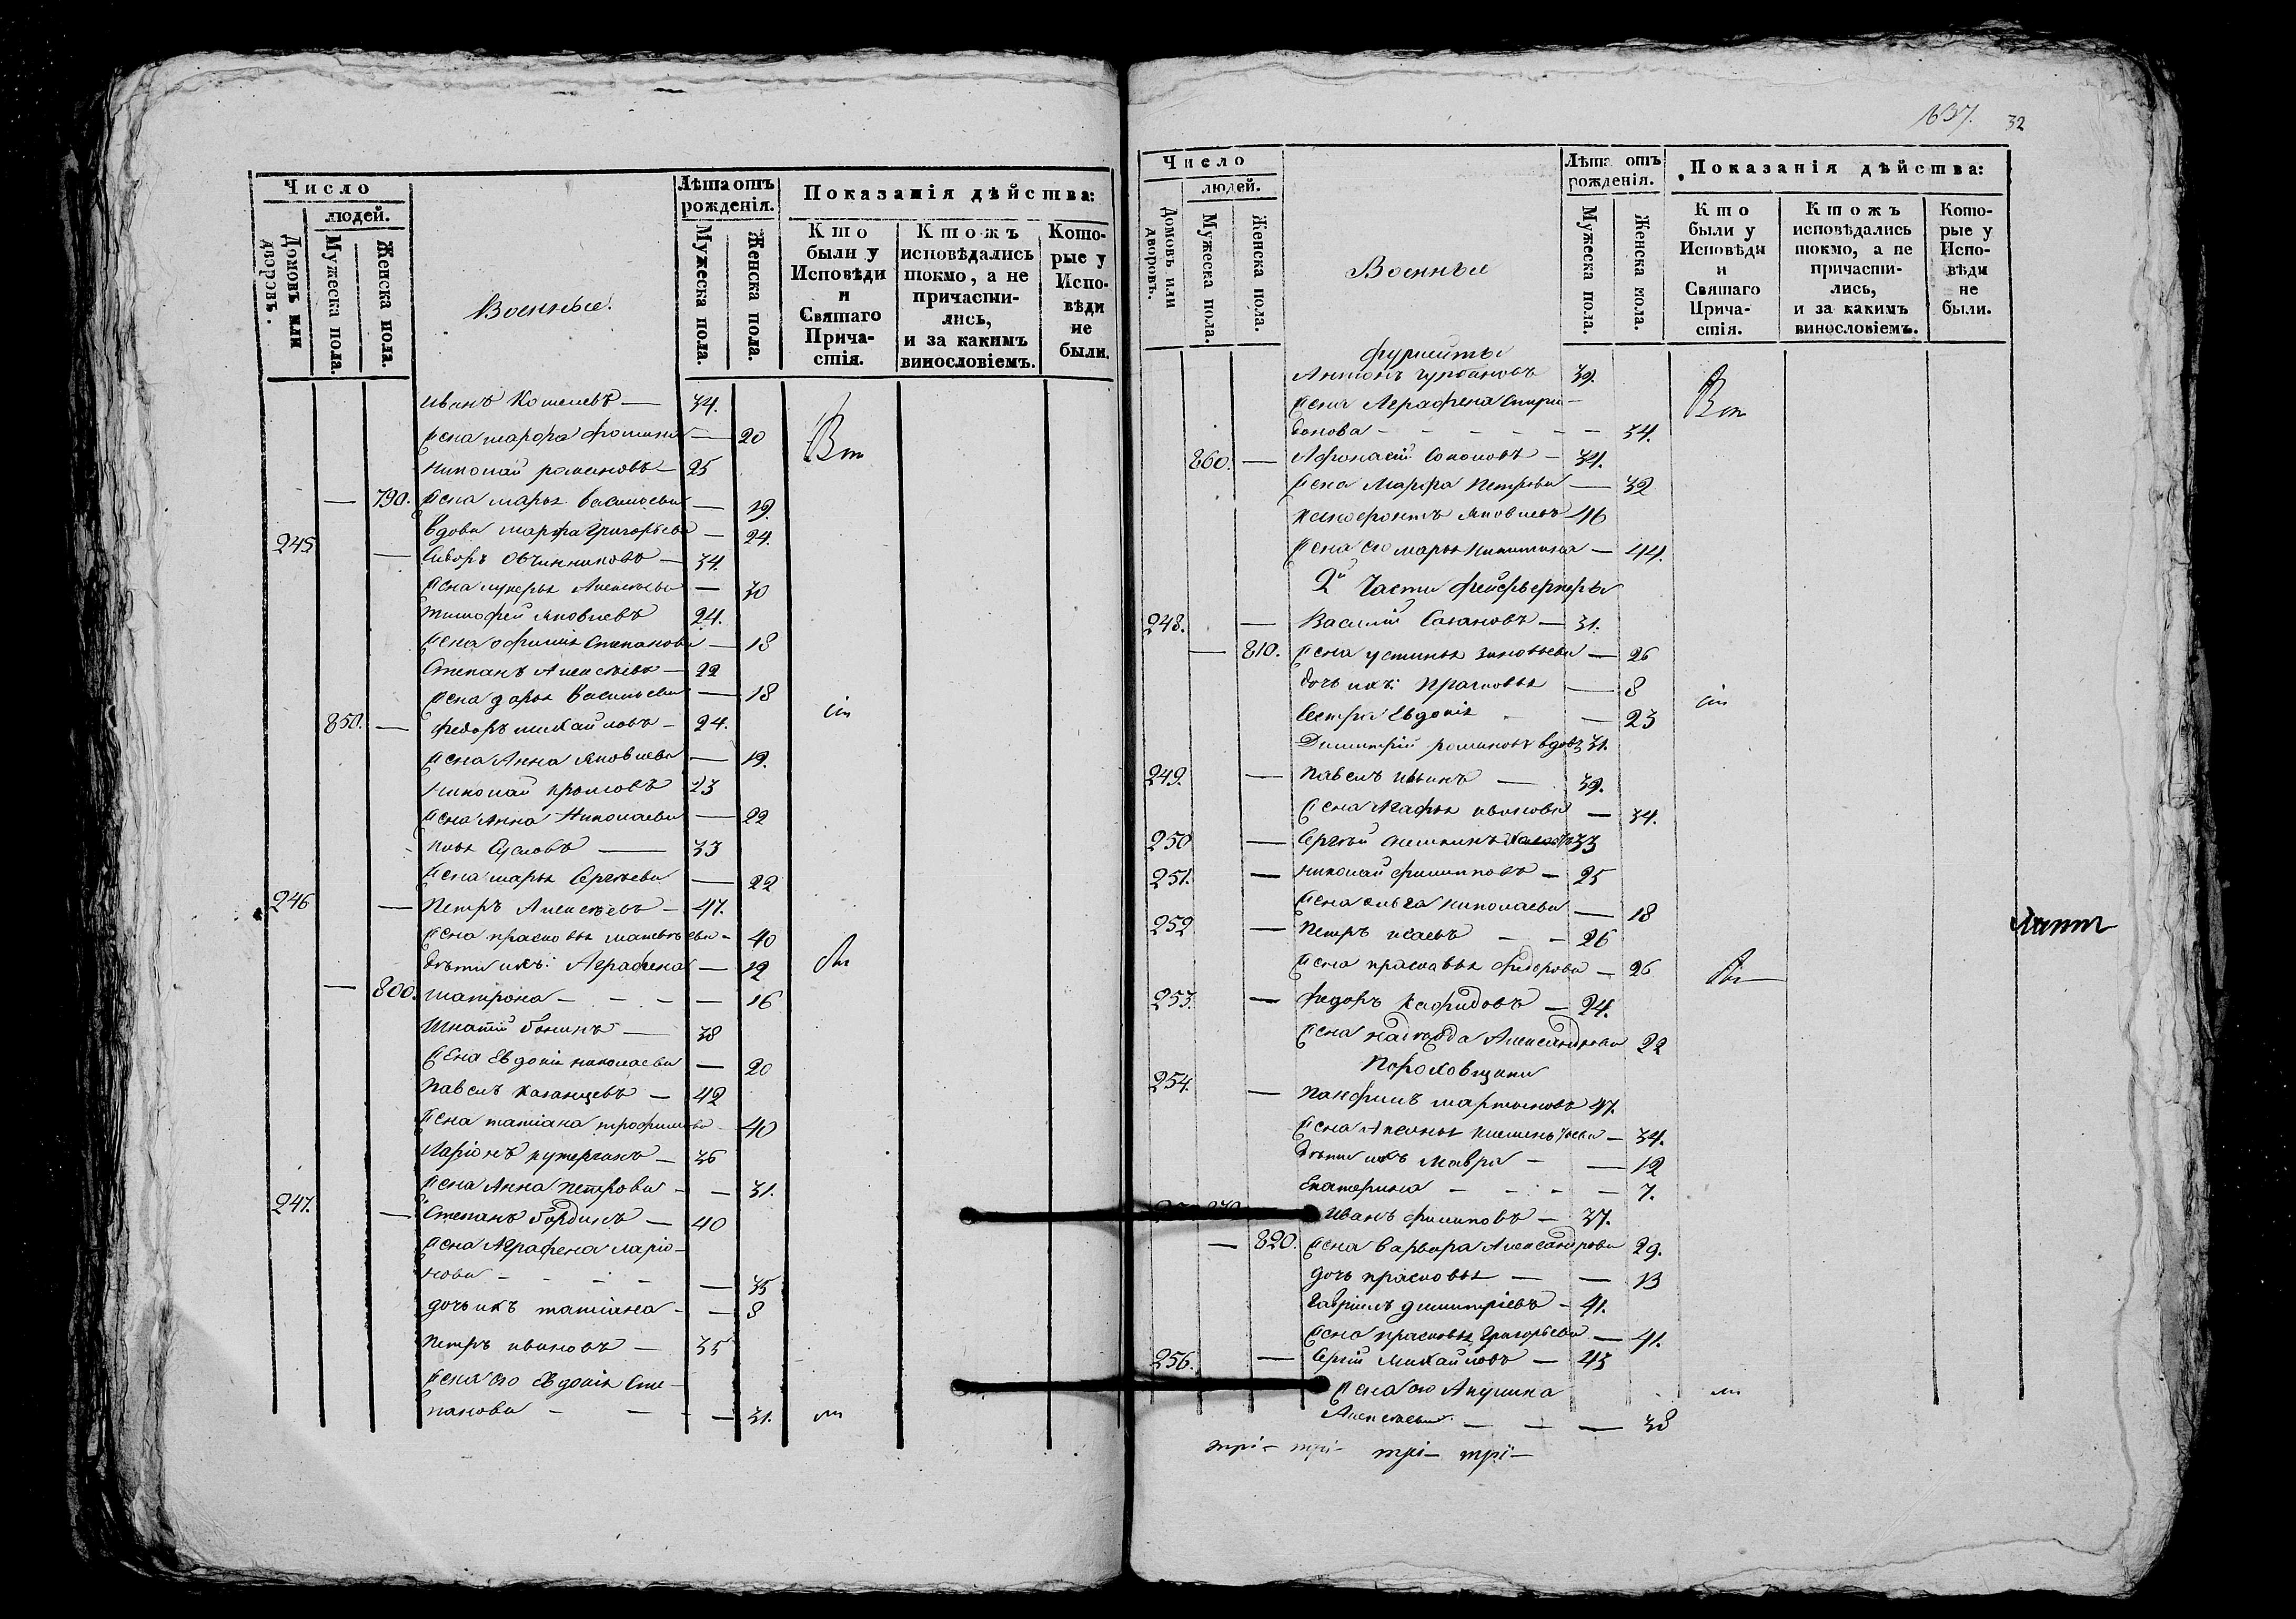 Число
людей.
Домовъ или дворовъ.
Мужеска пола.
Женска пола.
Военные.
Лѣта отъ рожденія.
Мужеска пола.
Женска пола.
Показанія дѣйства:
Кто были у Исповѣди и Святаго Причастія.
Ктожъ исповѣдались токмо, а не причастились, и за какимъ винословіемъ.
Которые у Исповѣди не были.
Иванъ Кошелевъ — 34.
жена марфа фомина — 20
Николай романовъ — 25
— 790. жена марья васильева — 19.
вдова марфа Григорьева — 24.
245 — Сидоръ Овчинниковъ — 34.
жена лукерья Алексѣева — 30
тимофей яковлевъ 24.
жена офимія Степанова — 18
Степанъ Алексѣевъ — 22
жена дарья васильева — 18
850. — федоръ михайловъ — 24.
жена Анна яковлева — 19.
Николай крыловъ 23
жена Анна Николаева — 22
Сусловъ — 33
жена марья Сергѣева — 22
246 — Петръ Алексѣевъ — 47.
жена прасковья матвѣева — 40
дѣти ихъ: Аграфена — 12
— 800. матрона — 16
Игнатій — 38
жена Евдокія николаева — 20
Павелъ казанцевъ — 42
жена татіана трофимова — 40
Ларіонъ — 36
жена Анна петрова — 31.
247. — Степанъ бардинъ — 40
жена Аграфена ларіо-
нова — 35
дочь ихъ татіана — 8
Петръ ивановъ — 35
жена его Евдокія Сте-
панова — 31.
1837. 32
Число
людей.
Домовъ или дворовъ.
Мужеска пола.
Женска пола.
Военные
Лѣта отъ рожденія.
Мужеска пола.
Женска пола.
Показанія дѣйства:
Кто были у Исповѣди и Святаго Причастія.
Ктожъ исповѣдались токмо, а не причастились, и за какимъ винословіемъ.
Которые у Исповѣди не были.
фурлейты
Антонъ 39.
жена Аграфена Спири-
донова — 34.
860. — Афонасій Соколовъ — 34.
жена Марфа петрова — 32
ксенофонтъ яковлевъ 46
жена его марья никитина — 44.
2й Части фейерверкеры
248. — Василій Сазановъ — 31.
— 810. жена устинья зиновьева — 26
дочь ихъ: прасковья — 8
Сестра Евдокія — 23
Димитрій романовъ вдовъ 31.
249. — павелъ ильинъ — 39.
жена Агафья иванова — 34.
250 — Сергѣй 33
251. — николай филиповъ — 25
жена ольга николаева — 18
252 — Петръ исаевъ — 26
жена прасковья федорова — 26
253. — федоръ — 24.
жена надежда Александрова 22
Пороховщики
254. — Панфилъ мартыновъ 47.
жена Аксинья климентьева — 34.
дѣти ихъ мавра — 12
Екатерина — 7.
Иванъ филиповъ — 37.
— 820. жена варвара Александрова 29.
дочь прасковья — 13
гавріилъ димитріевъ — 41.
жена прасковья Григорьева — 41.
256. — Сергій михайловъ — 43
жена его Акулина
Алексѣева — 38
три — три — три — три —